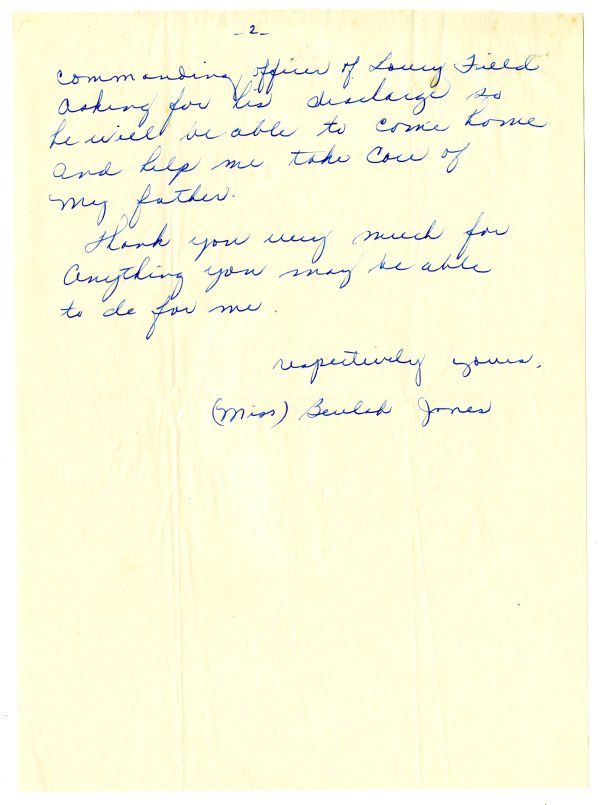 -2-
commanding officer of Lowry Field
asking for his discharge so
he will be able to come home
and help me take care of
my father.
Thank you very much for
anything you may be able
to do for me.
respectively yours,
(Miss) Beulah Jones